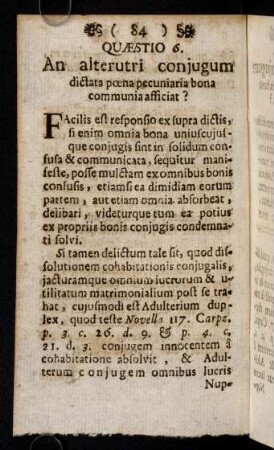 ( 84 )
QUÆSTIO 6.
An alterutri conjugum
dictata pœna pecuniaria bona
communia afficiat ?
FAcilis est responsio ex supra dictis,
si enim omnia bona uniuscujus-
que conjugis sint in solidum con-
fusa & communicata, sequitur mani-
feste, posse mulctam ex omnibus bonis
confusis, etiamsi ea dimidiam eorum
partem, aut etiam omnia absorbeat,
delibari, videturque tum ea potius
ex propriis bonis conjugis condemna-
ti solvi.
Si tamen delictum tale sit, quod dis-
solutionem cohabitationis conjugalis,
jacturamque omnium lucrorum & u-
tilitatum matrimonialium post se tra-
hat, cujusmodi est Adulterium dup-
lex, quod teste Novella 117. Carpz.
p. 3. c. 26. d. 9. & p. 4. c.
21. d. 3. conjugem innocentem â
cohabitatione absolvit, & Adul-
terum conjugem omnibus lucris
Nup-